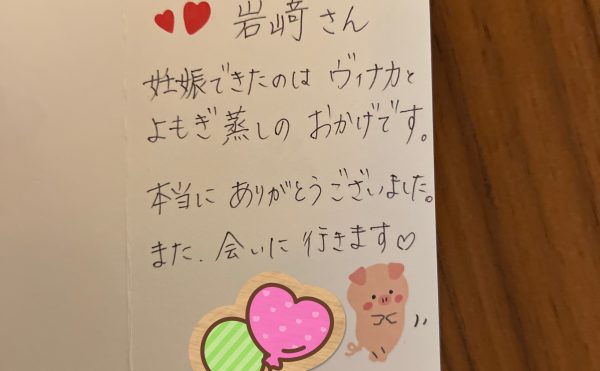 岩﨑さん
妊娠できたのは ヴィナカと
よもぎ蒸しの おかげです。
本当に ありがとうございました。
また、会いに 行きます♡